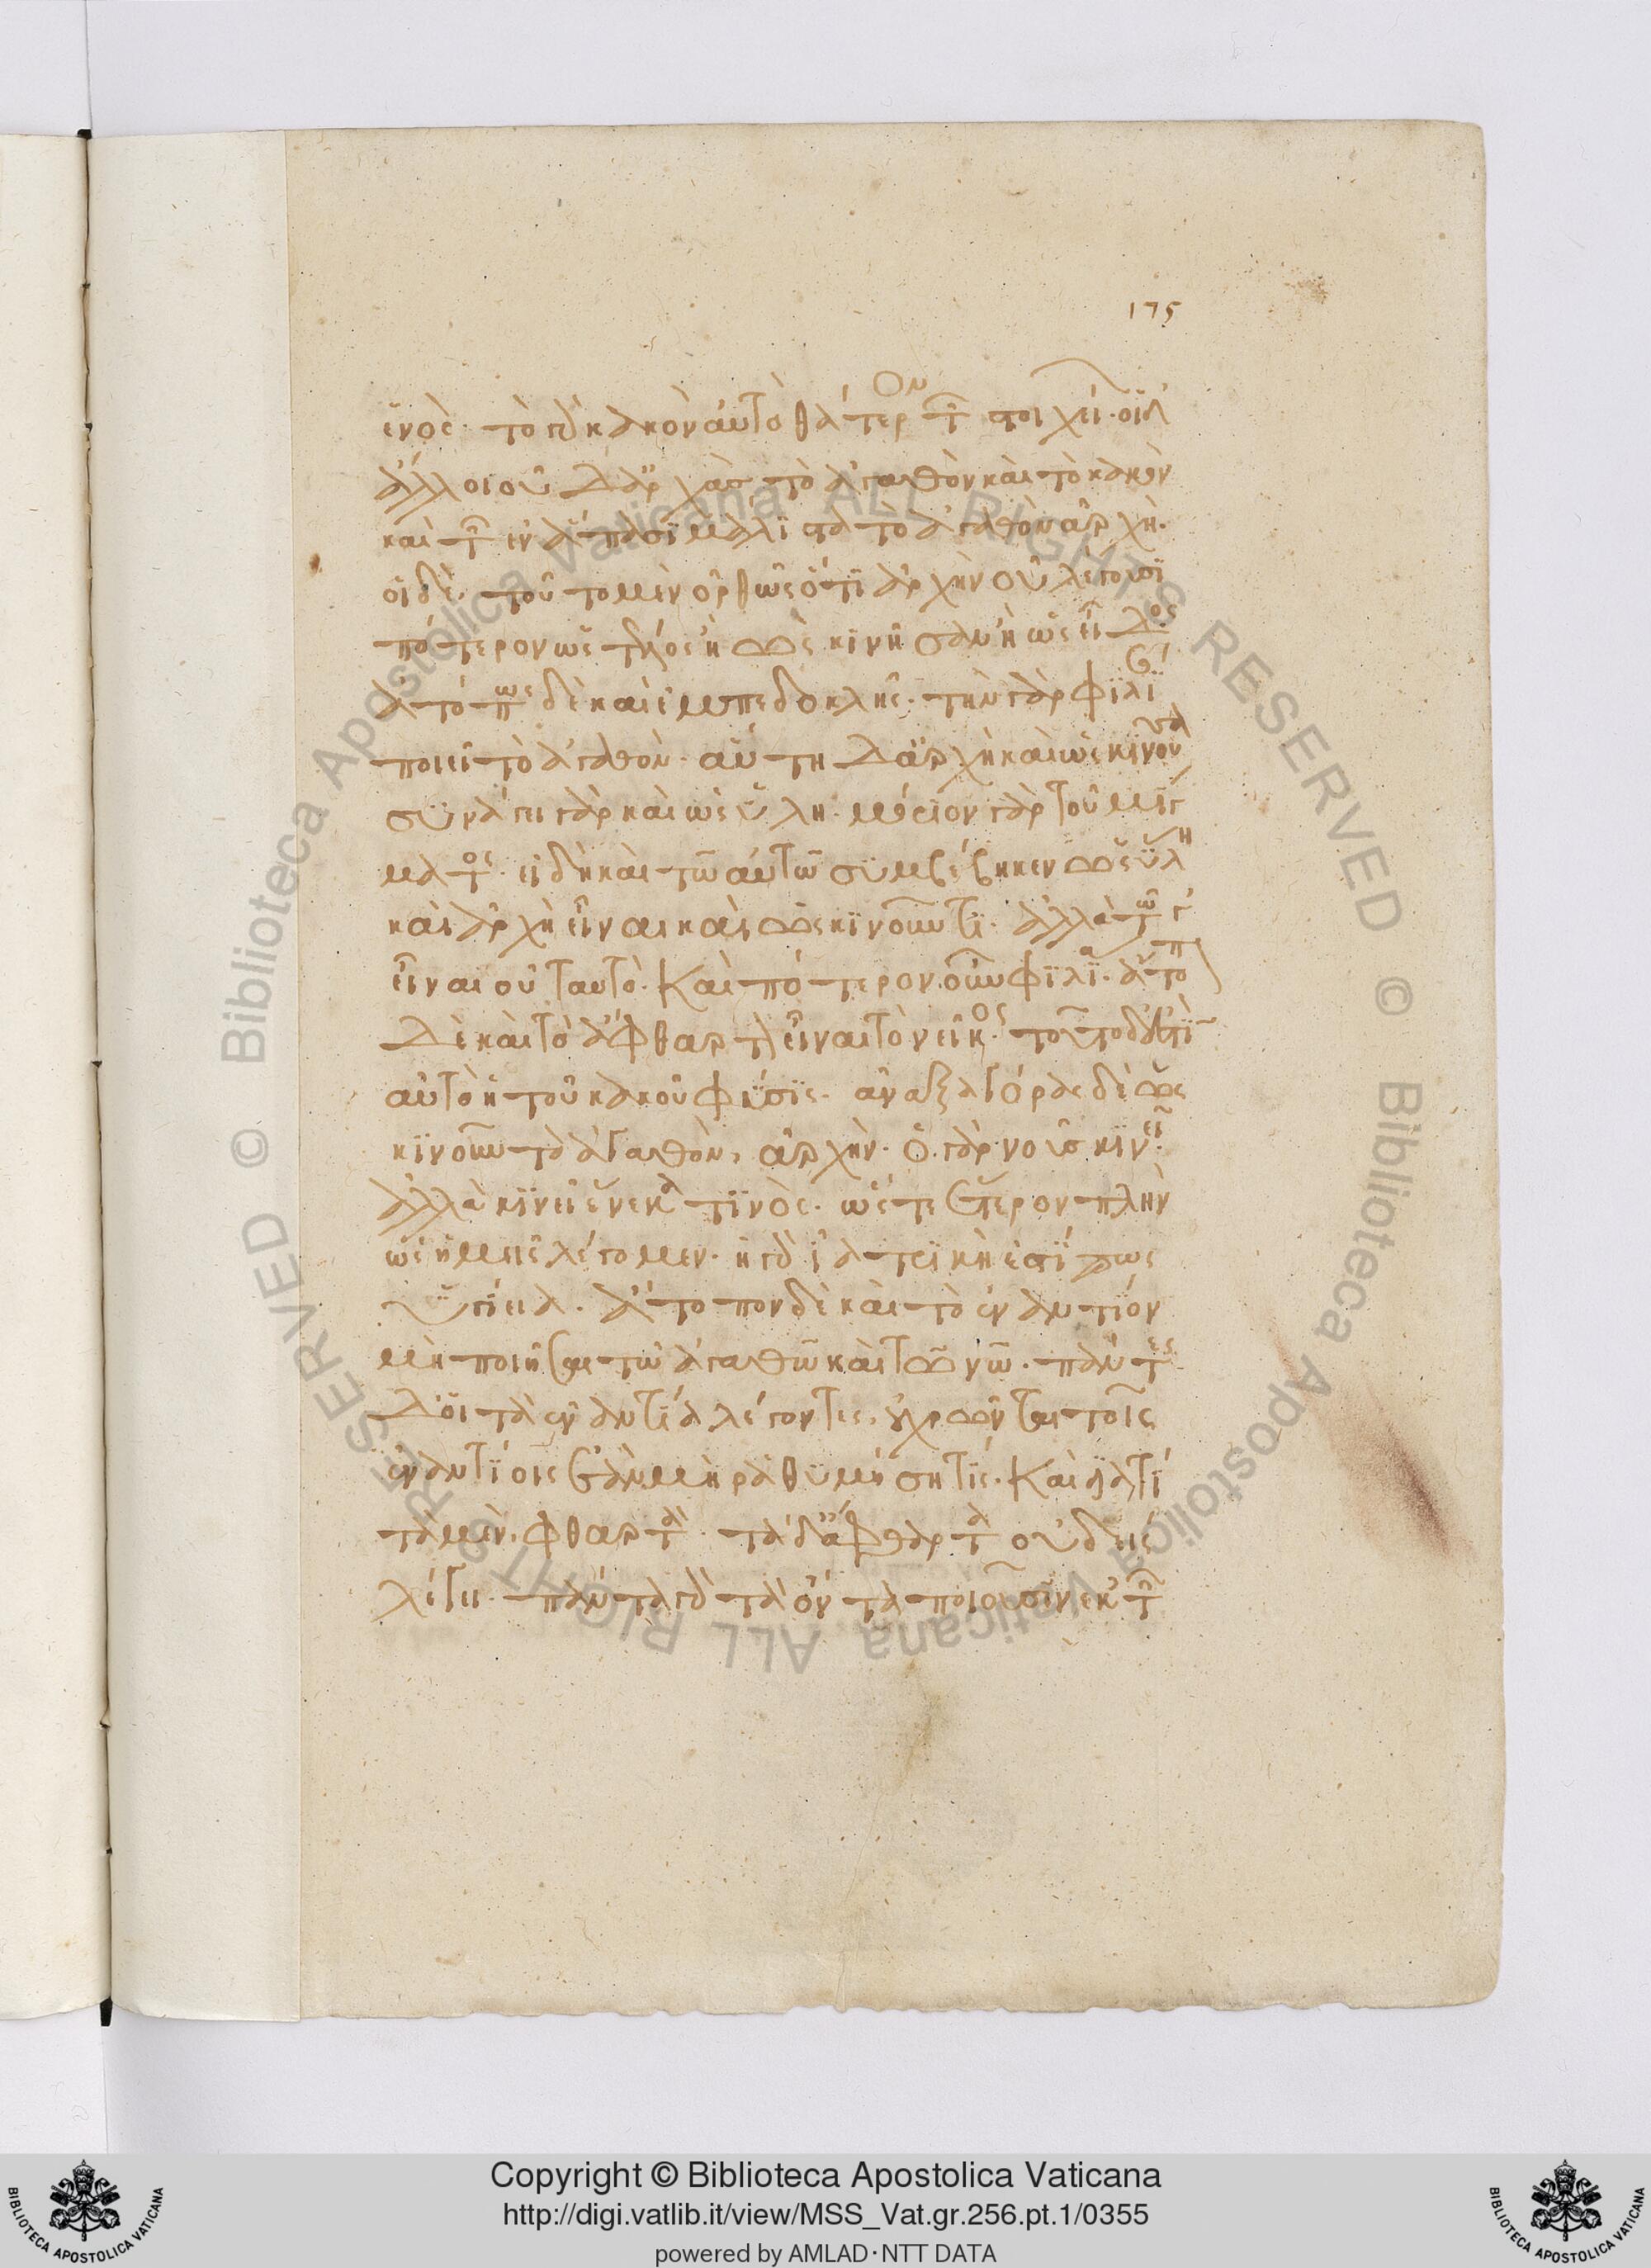 175
ἑνός· τὸ γὰρ κακὸν αὐτὸ θάτερον τῶν στοιχείων· οἱ δ'
ἄλλοι οὐδ' ἀρχὰς τὸ ἀγαθὸν καὶ τὸ κακὸν
καίτοι ἐν ἅπασι μάλιστα τὸ ἀγαθὸν ἀρχή·
οἱ δὲ τοῦτο μὲν ὀρθῶς ὅτι ἀρχὴν οὐ λέγουσι
πότερον ὡς τέλος ἢ ὡς κινῆσαν ἢ ὡς εἶδος
ἀτόπως δὲ καὶ ἐμπεδοκλῆς· τὴν γὰρ φιλίαν
ποιεῖ τὸ ἀγαθόν· αὕτη δ' ἀρχὴ καὶ ὡς κινοῦσα
συνάγει γὰρ καὶ ὡς ὕλη· μόριον γὰρ τοῦ μίγ
ματος· εἰ δὴ καὶ τῶ αὐτῶ συμβέβηκεν ὡς ὕλη
καὶ ἀρχὴ εἶναι καὶ ὡς κινοῦντι· ἀλλὰ τό γ'
εἶναι οὐ ταυτό· Καὶ πότερον οὖν φιλία· ἄτοπον
δὲ καὶ τὸ ἄφθαρτον εἶναι τὸ νεῖκος· τοῦτο δ' ἐστὶν
αὐτὸ ἡ τοῦ κακοῦ φύσις· ἀναξαγόρας δὲ ὡς
κινοῦν τὸ ἀγαθὸν, ἀρχήν· ὁ γὰρ νοῦς κινεῖ·
ἀλλὰ κινεῖ ἕνεκά τινος· ὥστε ἕτερον πλὴν
ὡς ἡμεῖς λέγομεν· ἡ γὰρ ἰατρικὴ ἐστί πως
ὑγίεια. ἄτοπον δὲ καὶ τὸ ἐναντίον
μὴ ποιῆσαι τῶ ἀγαθῶ καὶ τῶ νῶ· πάντες
δ' οἱ τὰ ἐναντία λέγοντες, οὐ χρῶνται τοῖς
ἐναντίοις ἐὰν μὴ ῥαθυμήση τίς· Καὶ διατί
τὰ μὲν, φθαρτά· τὰ δ' ἄφθαρτα οὐδεὶς
λέγει· πάντα γὰρ τὰ ὄντα ποιοῦσιν ἐκ τῶν
Copyright © Biblioteca Apostolica Vaticana
http://digi.vatlib.it/view/MSS_Vat.gr.256.pt.1/0355
powered by AMLAD·NTT DATA